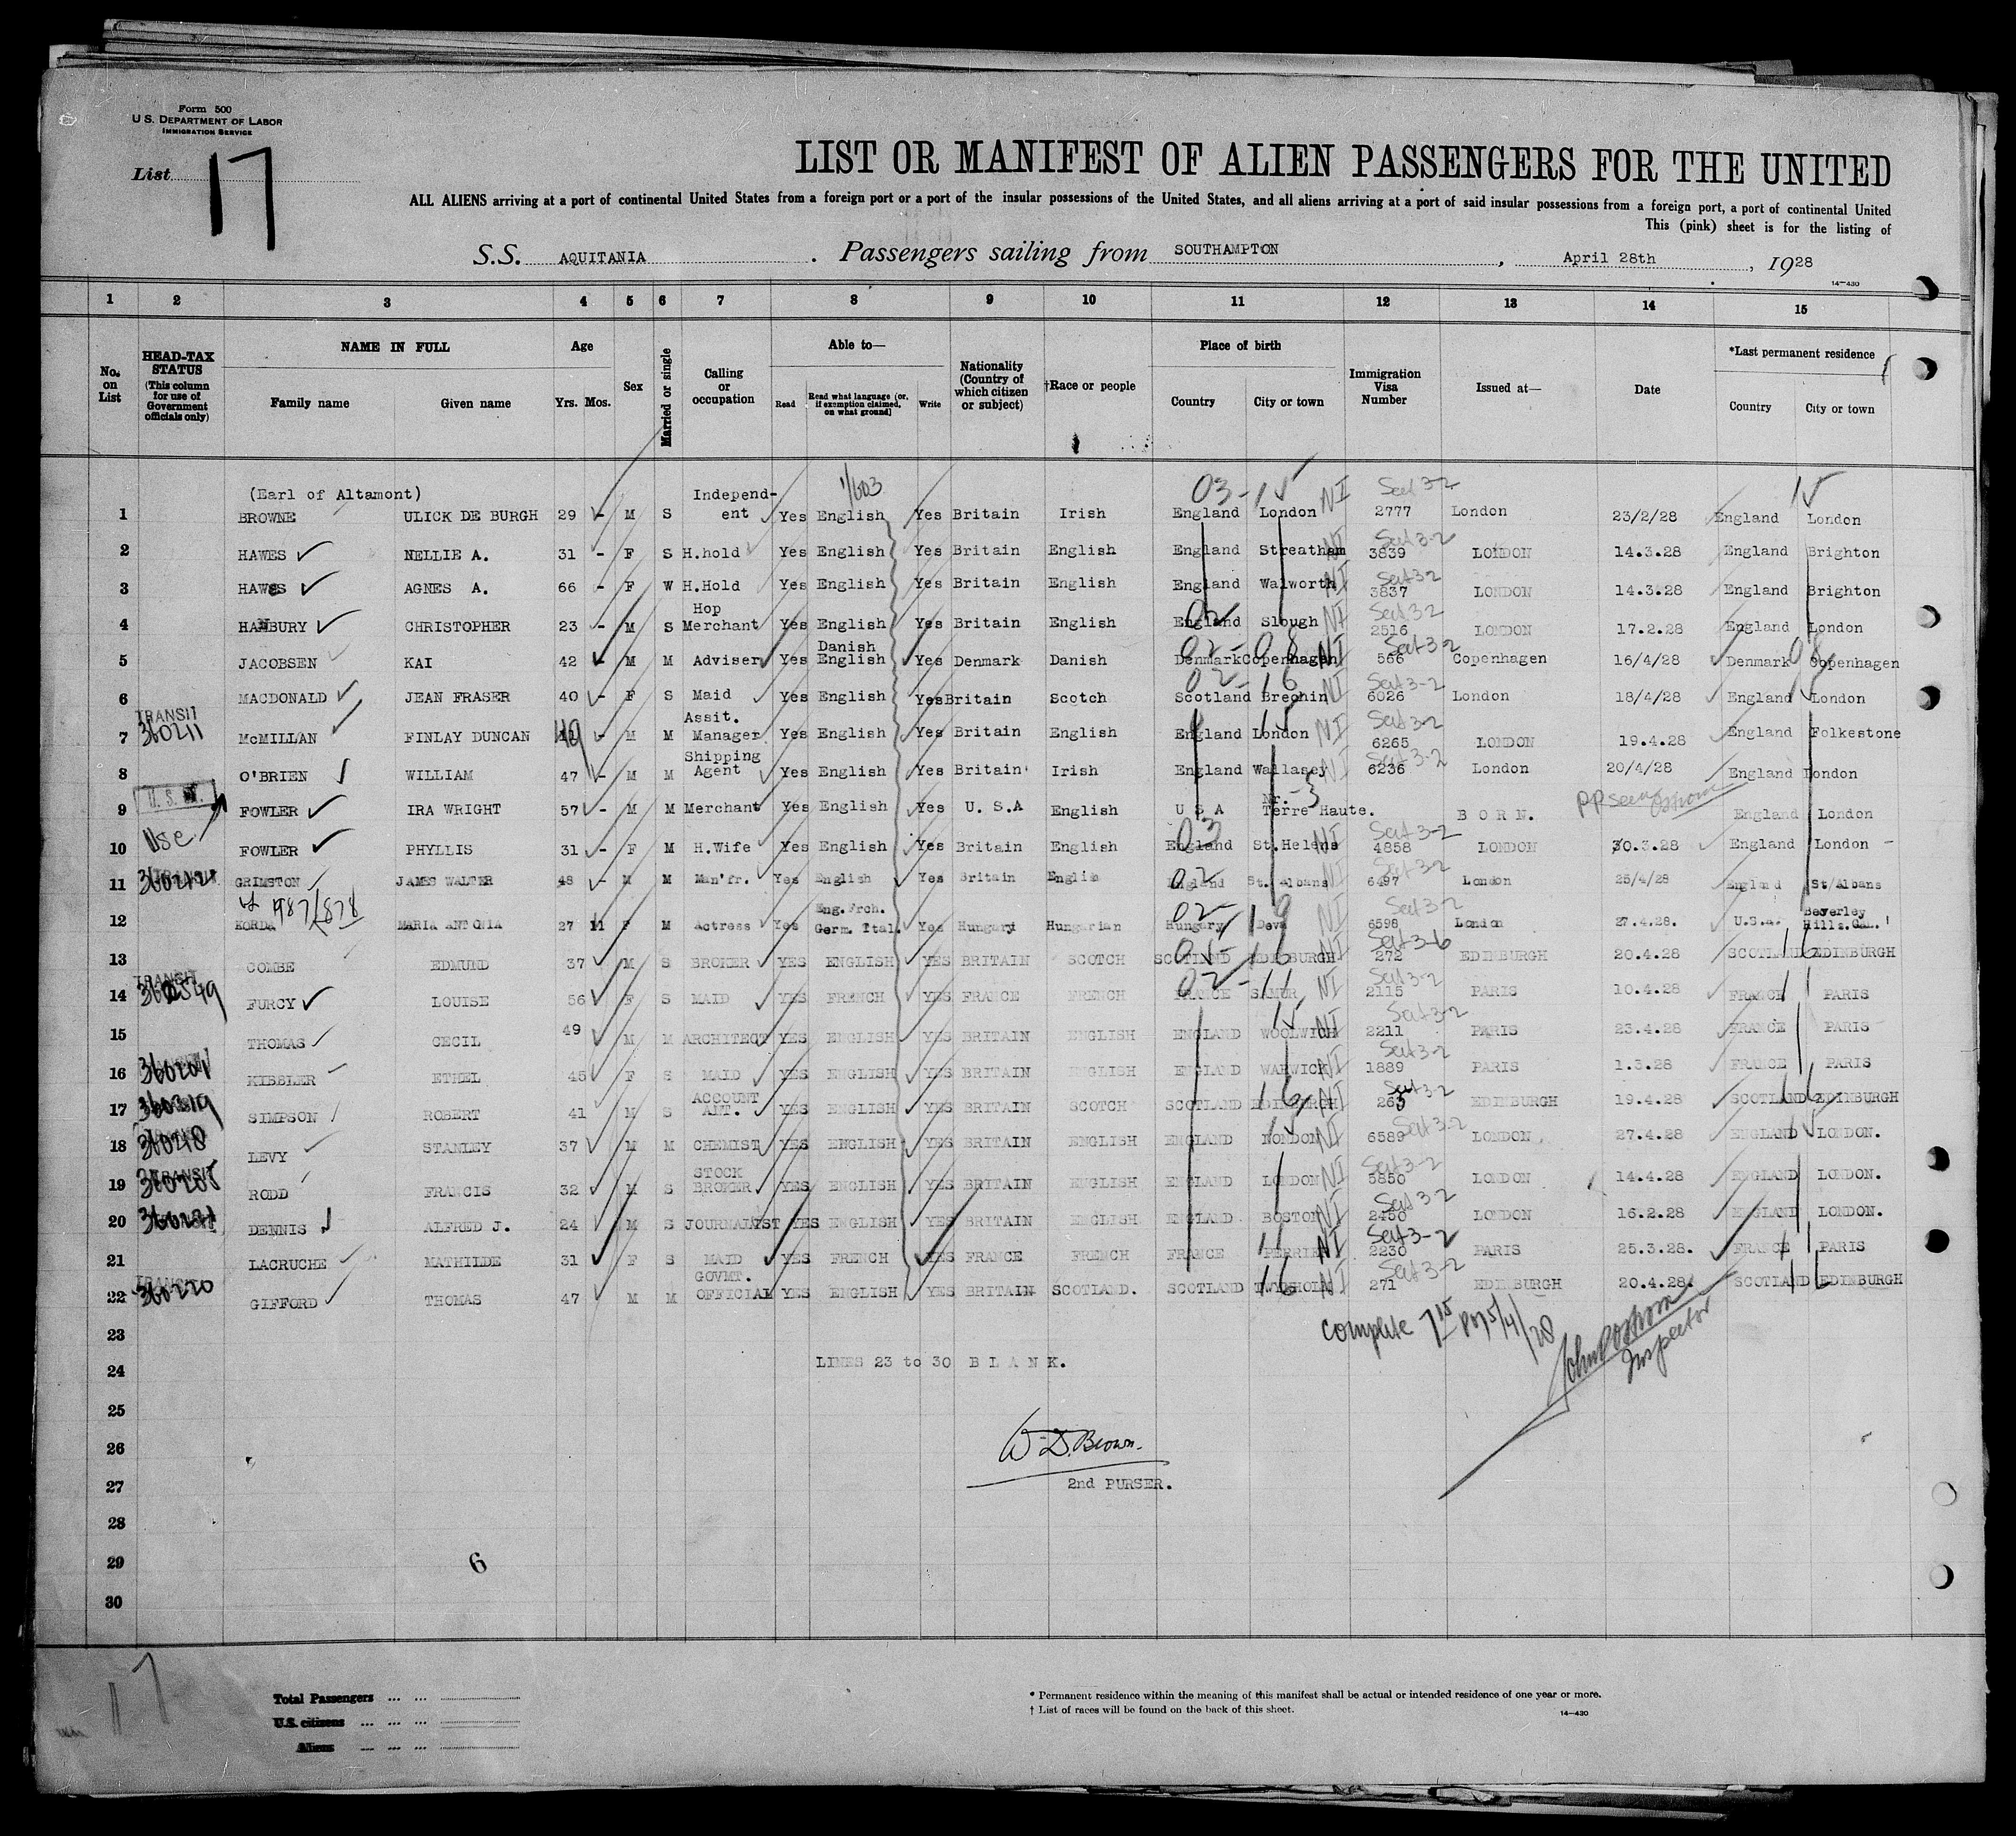 Form 500
U.S. DEPARTMENT OF LABOR
IMMIGRATION SERVICE
List 17
LIST OR MANIFEST OF ALIEN PASSENGERS FOR THE UNITED
ALL ALIENS arriving at a port of continental United States from a foreign port or a port of the insular possessions of the United States, and all aliens arriving at a port of said insular possessions from a foreign port, a port of continental United
This (pink) sheet is for the listing of
S.S. AQUITANIA . Passengers sailing from SOUTHAMPTON , April 28th , 1928
14—430
1 2 3 4 5 6 7 8 9 10 11 12 13 14 15
No. on List
HEAD-TAX STATUS (This column for use of Government officials only)
NAME IN FULL
Family name Given name
Age
Yrs. Mos.
Sex
Married or single
Calling or occupation
Able to—
Read Read what language (or, if exemption claimed, on what ground) Write
Nationality (Country of which citizen or subject)
†Race or people
Place of birth
Country City or town
Immigration Visa Number
Issued at—
Date
*Last permanent residence
Country City or town
(Earl of Altamont) Independ- 1/603 03-15 NI Sect 3-2 15
1 BROWNE ULICK DE BURGH 29 - M S ent Yes English Yes Britain Irish England London 2777 London 23/2/28 England London
2 HAWES NELLIE A. 31 - F S H.hold Yes English Yes Britain English England Streatham NI Sect 3-2 3839 LONDON 14.3.28 England Brighton
3 HAWES AGNES A. 66 - F W H.Hold Yes English Yes Britain English England Walworth NI Sect 3-2 3837 LONDON 14.3.28 England Brighton
4 HANBURY CHRISTOPHER 23 - M S Hop Merchant Yes English Yes Britain English England Slough NI Sect 3-2 2516 LONDON 17.2.28 England London
5 JACOBSEN KAI 42 - M M Adviser Yes Danish English Yes Denmark Danish 02-08 Denmark Copenhagen NI Sect 3-2 566 Copenhagen 16/4/28 Denmark Copenhagen 08
6 MACDONALD JEAN FRASER 40 - F S Maid Yes English Yes Britain Scotch 02-16 Scotland Brechin NI Sect 3-2 6026 London 18/4/28 England London
TRANSIT
7 360211 McMILLAN FINLAY DUNCAN 49 - M M Assit. Manager Yes English Yes Britain English England London 15 NI Sect 3-2 6265 LONDON 19.4.28 England Folkestone
8 O'BRIEN WILLIAM 47 - M M Shipping Agent Yes English Yes Britain Irish England Wallasey NI Sect 3-2 6236 London 20/4/28 England London
9 FOWLER IRA WRIGHT 57 - M M Merchant Yes English Yes U.S.A English U S A Nr. Terre Haute. BORN. PP seen England London
10 usc FOWLER PHYLLIS 31 - F M H.Wife Yes English Yes Britain English 03 England St.Helens NI Sect 3-2 4858 LONDON 30.3.28 England London -
11 GRIMSTON JAMES WALTER 48 - M M Man'fr. Yes English Yes Britain English 02 England St. Albans NI Sect 3-2 6497 London 25/4/28 England St/Albans
12 KORDA MARIA ANTONIA 27 11 F M Actress Yes Eng. Frch. Germ. Ital. Yes Hungary Hungarian 02-19 Hungary Deva NI Sect 3-2 6598 London 27.4.28. U.S.A. Beverley Hills. Cal.
13 COMBE EDMUND 37 M S BROKER YES ENGLISH YES BRITAIN SCOTCH SCOTLAND EDINBURGH 16 NI Sect 3-6 272 EDINBURGH 20.4.28 SCOTLAND EDINBURGH 16
TRANSIT
14 FURCY LOUISE 56 F S MAID YES FRENCH YES FRANCE FRENCH 02-11 FRANCE SAMUR NI Sect 3-2 2115 PARIS 10.4.28 FRANCE PARIS 11
15 THOMAS CECIL 49 M M ARCHITECT YES ENGLISH YES BRITAIN ENGLISH ENGLAND WOOLWICH 15 NI Sect 3-2 2211 PARIS 23.4.28 FRANCE PARIS
16 KIBBLER ETHEL 45 F S MAID YES ENGLISH YES BRITAIN ENGLISH ENGLAND WARWICK NI Sect 3-2 1889 PARIS 1.3.28 FRANCE PARIS
17 360219 SIMPSON ROBERT 41 M S ACCOUNT ANT. YES ENGLISH YES BRITAIN SCOTCH SCOTLAND EDINBURGH 16 NI Sect 3-2 265 EDINBURGH 19.4.28 SCOTLAND EDINBURGH 16
18 LEVY STANLEY 37 M M CHEMIST YES ENGLISH YES BRITAIN ENGLISH ENGLAND LONDON 15 NI 6589 Sect 3-2 LONDON 27.4.28 ENGLAND LONDON. 15
TRANSIT
19 RODD FRANCIS 32 M S STOCK BROKER YES ENGLISH YES BRITAIN ENGLISH ENGLAND LONDON NI Sect 3-2 3850 LONDON 14.4.28 ENGLAND LONDON.
20 360221 DENNIS ALFRED J. 24 M S JOURNALIST YES ENGLISH YES BRITAIN ENGLISH ENGLAND BOSTON NI Sect 3-2 2450 LONDON 16.2.28 ENGLAND LONDON.
21 LACRUCHE MATHILDE 31 F S MAID YES FRENCH YES FRANCE FRENCH FRANCE PERRIER 11 NI Sect 3-2 2230 PARIS 25.3.28. FRANCE PARIS 11
TRANSIT
22 360220 GIFFORD THOMAS 47 M M GOVMT. OFFICIAL YES ENGLISH YES BRITAIN SCOTLAND. SCOTLAND TWYSHOLM 16 NI Sect 3-2 271 EDINBURGH 20.4.28. SCOTLAND EDINBURGH 16
23 Complete 7 15 pm 5/4/28
24 LINES 23 to 30 BLANK. Inspector
25
26 W. D. Brown.
27 2nd PURSER.
28
29 6
30
17
Total Passengers ... ...
U.S. citizens ... ... ...
Aliens ... ... ...
* Permanent residence within the meaning of this manifest shall be actual or intended residence of one year or more.
† List of races will be found on the back of this sheet.
14—430